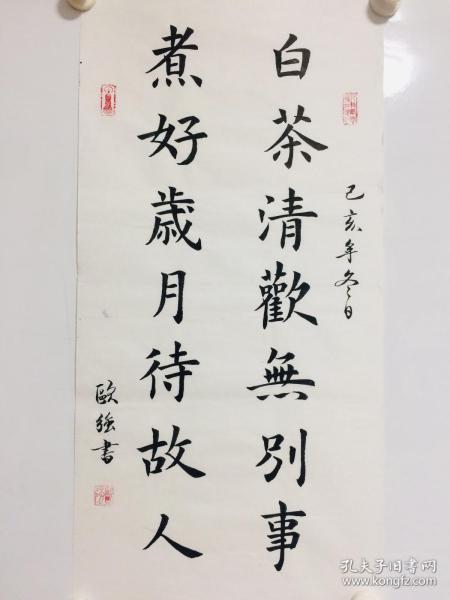 己亥年冬日
白茶清歡無別事
煮好歲月待故人
歐強書
孔夫子旧书网
www.kongfz.com